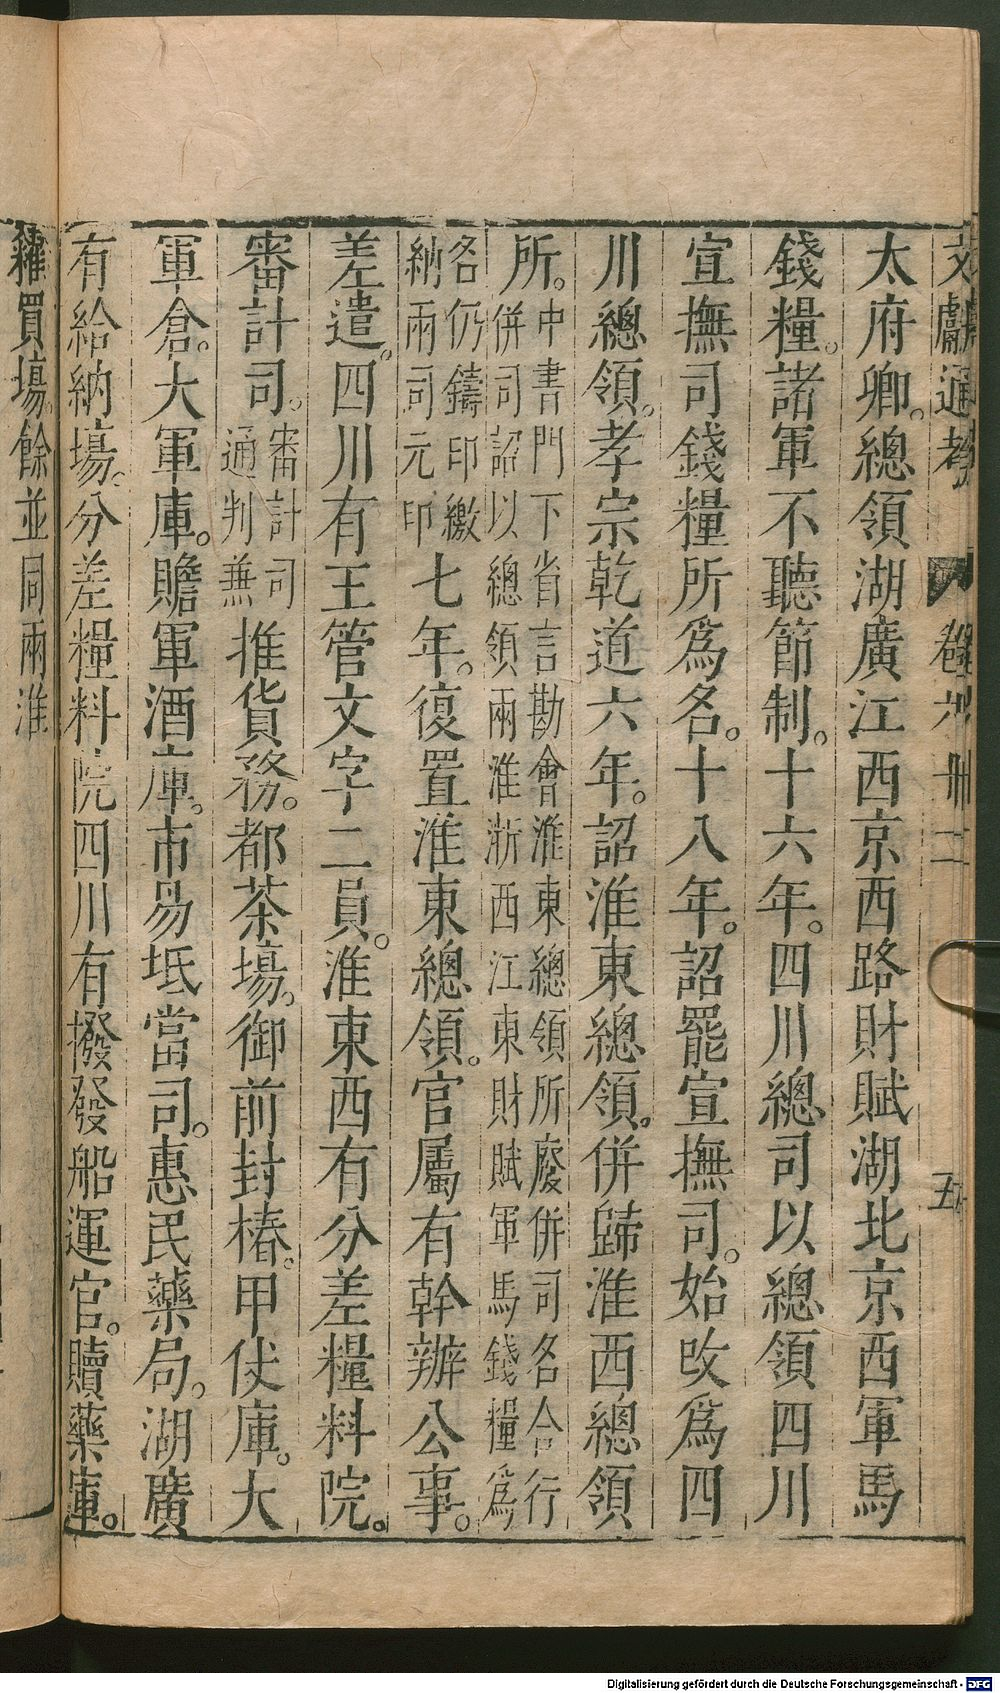 文獻通考 卷六十二 五
太府卿。總領湖廣江西京西路財賦湖北京西軍馬
錢糧。諸軍不聽節制。十六年。四川總司以總領四川
宣撫司錢糧所爲名。十八年。詔罷宣撫司。始改爲四
川總領。孝宗乾道六年。詔淮東總領。併歸淮西總領
所。中書門下省言勘會淮東總領所廢併司各合行
併司詔以總領兩淮浙西江東財賦軍馬錢糧爲
名仍鑄印繳
納兩司元印七年。復置淮東總領。官屬有幹辦公事。
差遣。四川有主管文字二員。淮東西有分差糧料院。
審計司。審計司
通判兼推貨務。都茶場。御前封樁。甲仗庫。大
軍倉。大軍庫。贍軍酒庫。市易坻當司。惠民藥局。湖廣
有給納場。分差糧料院四川有撥發船運官。贖藥庫。
糴買場。餘並同兩淮
Digitalisierung gefördert durch die Deutsche Forschungsgemeinschaft - DFG